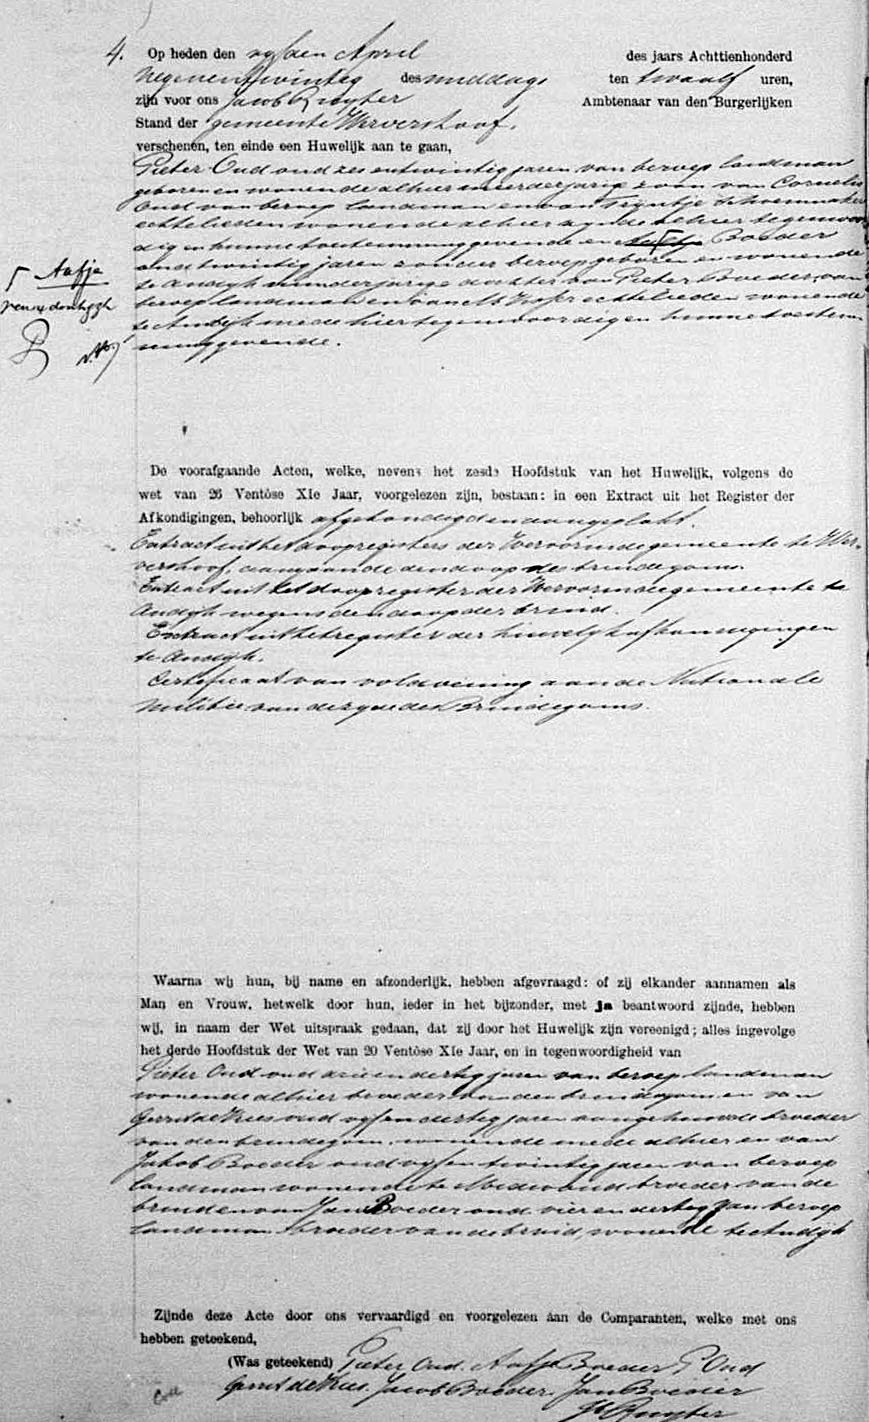 4. Op heden den vyfden April des jaars Achttienhonderd
negenentwintig des middags ten twaalf uren,
zijn voor ons Jacob Ruyter Ambtenaar van den Burgerlijken
Stand der gemeente Wervershoof.
verschenen, ten einde een Huwelijk aan te gaan,
Pieter Oud oud zes en twintig jaren van beroep landman
geboren en wonende alhier meerderjarige zoon van Cornelis
Oud van beroep landman en van Trijntje Schoenmaker
echtelieden wonende alhier zynde alhier tegenwoor
digen hunne toestemming gevende en Boeder
oud twintig jaren zonder beroep geboren en wonende
te Andyk minderjarige dochter van Pieter Boeder van
beroep landman en van echtelieden wonende
te Andijk mede hier tegenwoordig en hunne toestem
ming gevende.
Aafje
De voorafgaande Acten, welke, nevens het zesde Hoofdstuk van het Huwelijk, volgens de
wet van 26 Ventôse XIe Jaar, voorgelezen zijn, bestaan: in een Extract uit het Register der
Afkondigingen, behoorlijk afgekondigd en aangeplakt.
Extract uit het doopregisters der Hervormde gemeente te Wer-
vershoof, aangaande den doop des bruidegoms.
Extract uit het doopregister der Hervormde gemeente te
Andyk wegens den doop der bruid.
Extract uit het register der huwelyksafkondigingen
te Andyk.
Certificaat van voldoening aan de Nationale
Militie van de zyde des Bruidegoms.
Waarna wij hun, bij name en afzonderlijk, hebben afgevraagd: of zij elkander aannamen als
Man en Vrouw, hetwelk door hun, ieder in het bijzonder, met ja beantwoord zijnde, hebben
wij, in naam der Wet uitspraak gedaan, dat zij door het Huwelijk zijn vereenigd; alles ingevolge
het derde Hoofdstuk der Wet van 20 Ventôse XIe Jaar, en in tegenwoordigheid van
Pieter Oud oud drie en dertig jaren van beroep landman
wonende alhier broeder van den bruidegom en van
Gerrit de Vries oud vyf en dertig jaren aangehuwde broeder
van den bruidegom, wonende mede alhier en van
Jakob Boeder oud vyf en twintig jaren van beroep
landman wonende te Medemblik broeder van de
bruid en van Jan Boeder oud vier en dertig van beroep
landman broeder van de bruid, wonende te Andijk
Zijnde deze Acte door ons vervaardigd en voorgelezen aan de Comparanten, welke met ons
hebben geteekend,
(Was geteekend) Pieter Oud. Aafje Boeder P Oud
Gerrit de Vries. Jacob Boeder. Jan Boeder
Jb Ruyter